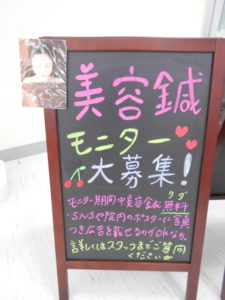 美容鍼
モニター
大募集!
タダ
モニター期間中美容鍼無料
・SNSや院内のポスターに写真
つき広告を載せるのがOKな方
詳しくはスタッフまでご質問
ください